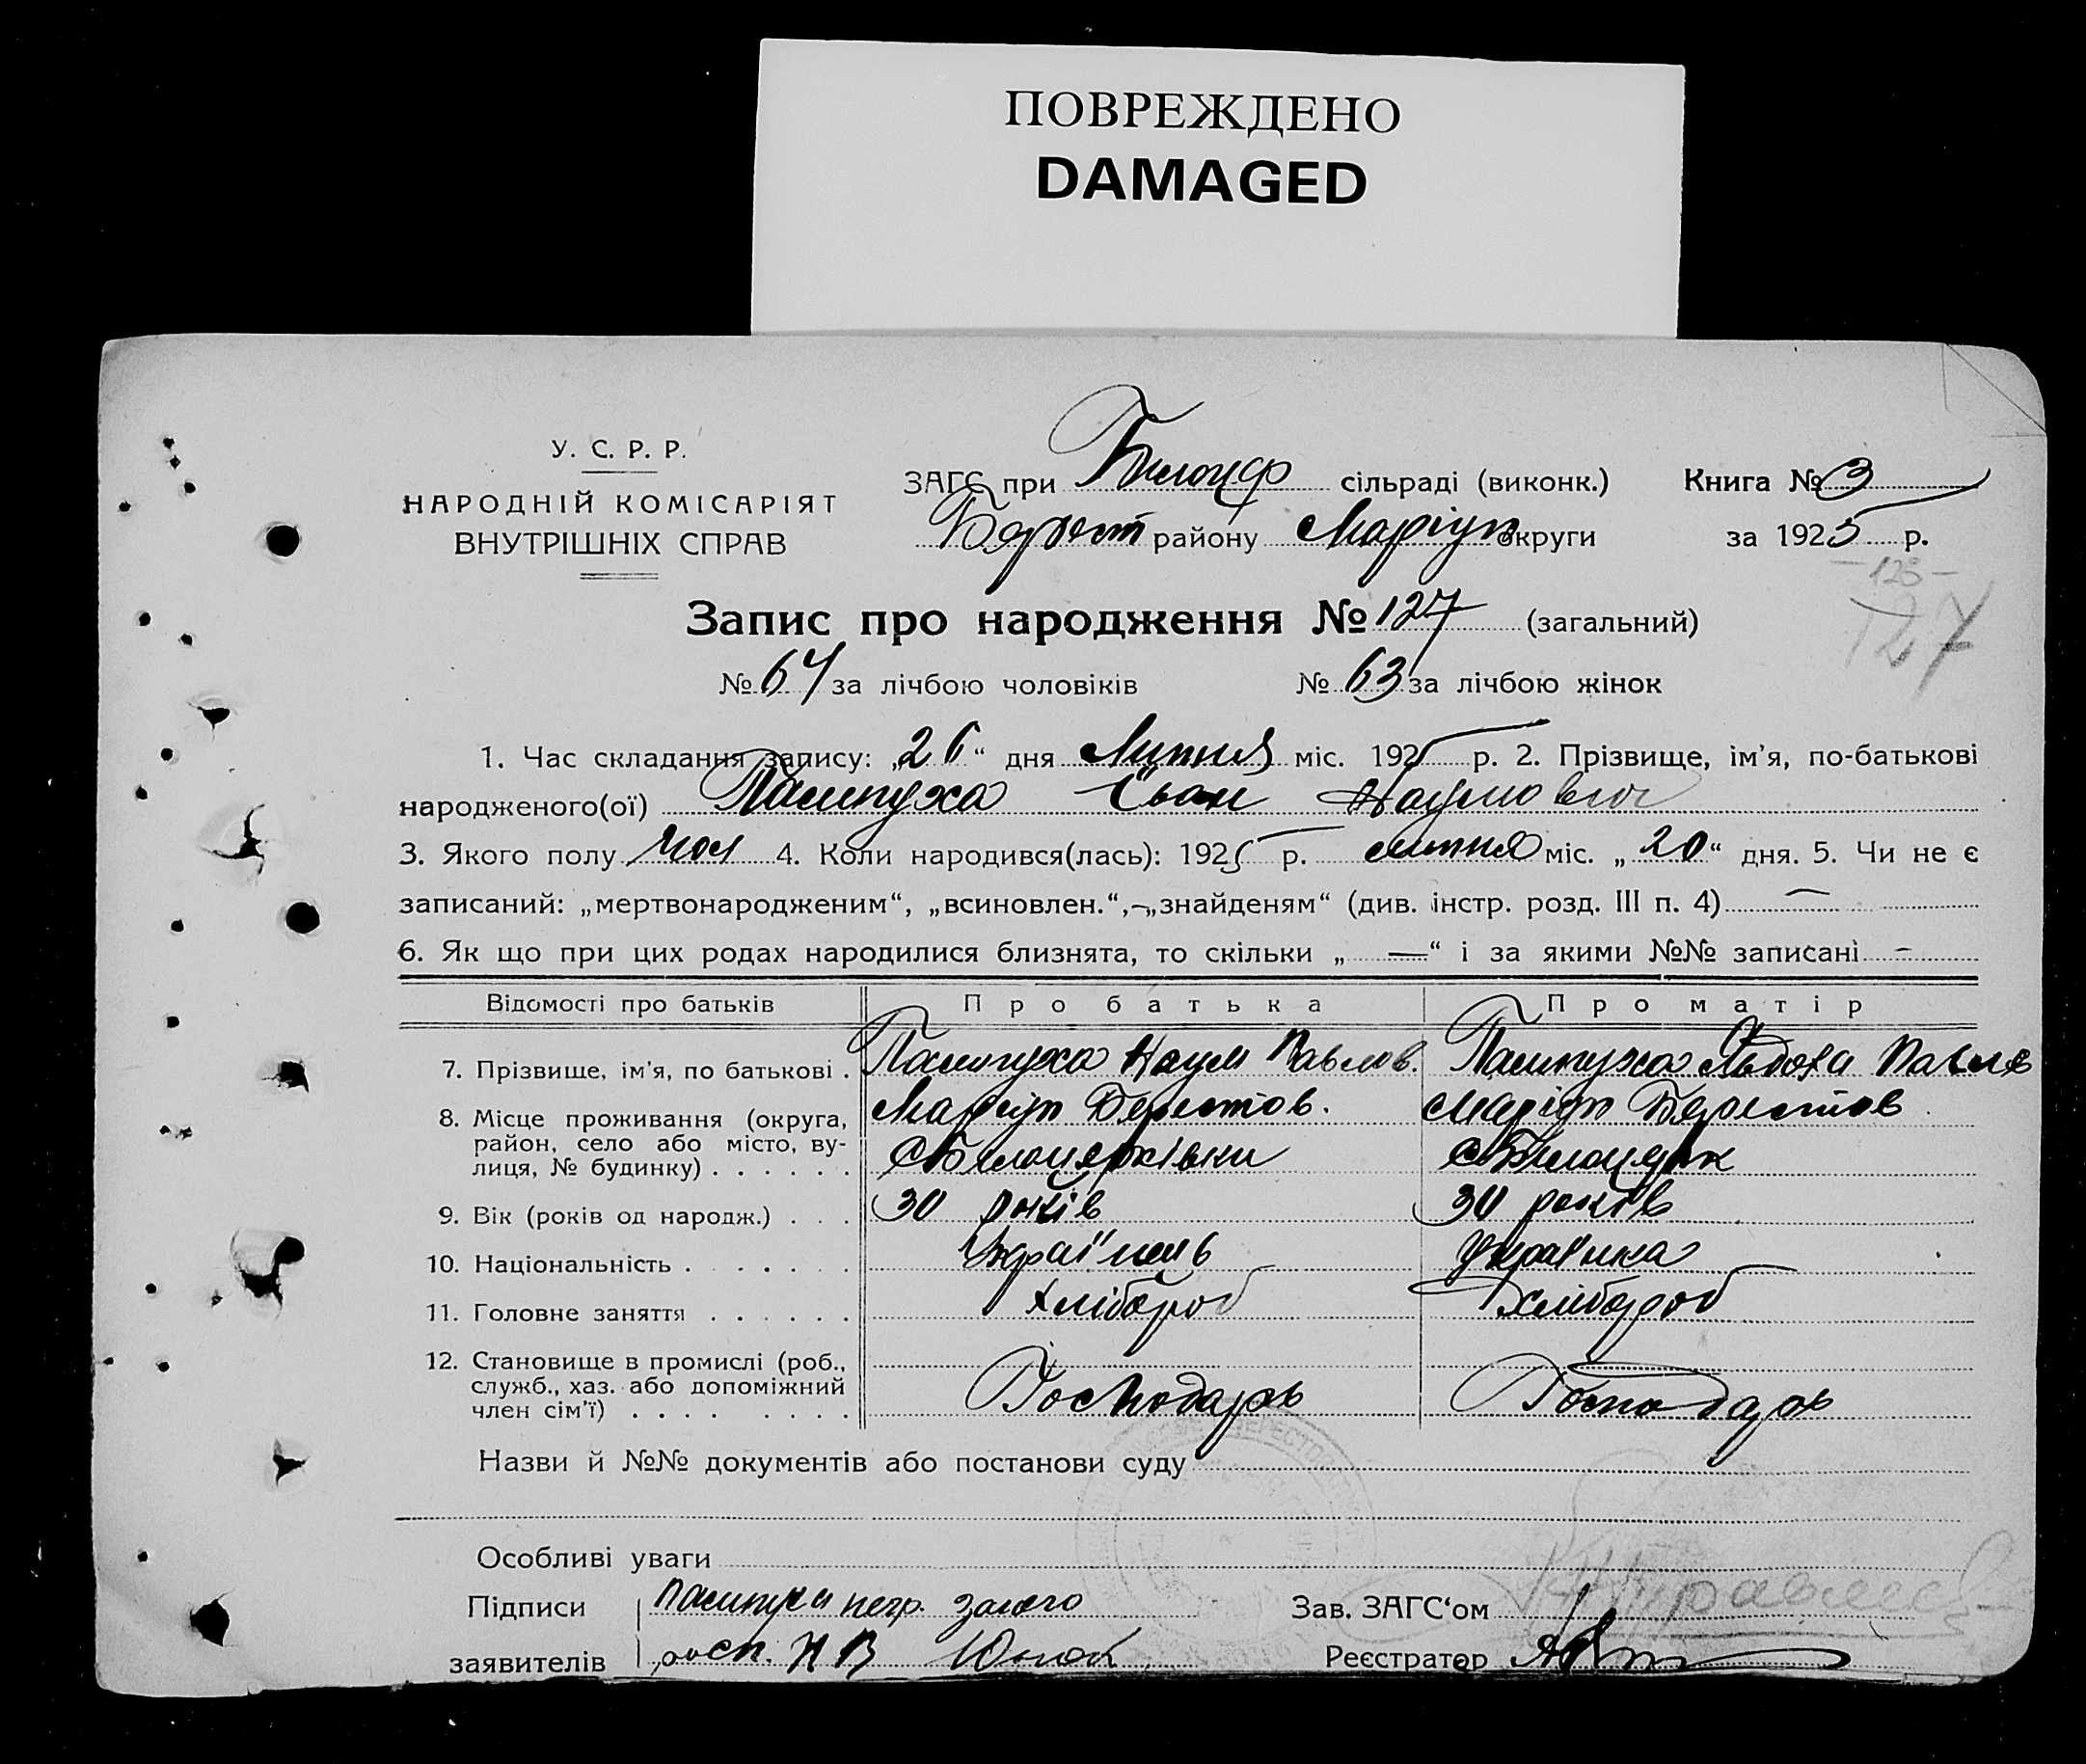 ПОВРЕЖДЕНО
DAMAGED
У. С. Р. Р.
НАРОДНІЙ КОМІСАРІЯТ
ВНУТРІШНІХ СПРАВ
ЗАГС при Билоцер сільраді (виконк.) Книга № 3
Берест району Маріуп округи за 1925 р.
- 123 -
127
Запис про народження № 127 (загальний)
№ 64 за лічбою чоловіків № 63 за лічбою жінок
1. Час складання запису: „26“ дня Липня міс. 1925 р. 2. Прізвище, ім'я, по-батькові
народженого(ої) Пампуха Іван Наумович
3. Якого полу чол 4. Коли народився(лась): 1925 р. липня міс. „20“ дня. 5. Чи не є
записаний: „мертвонародженим“, „всиновлен.“, „знайденям“ (див. інстр. розд. III п. 4) —
6. Як що при цих родах народилися близнята, то скільки „ — “ і за якими №№ записані -
Відомості про батьків Про батька Про матір
7. Прізвище, ім'я, по батькові . Пампуха Наум Павлов. Пампуха Павлов
8. Місце проживання (округа, Маріуп Берестов. Маріуп Берестов
район, село або місто, ву-
лиця, № будинку) . . . . . . с Билоцерківки с Билоцерк
9. Вік (років од народж.) . . . 30 років 30 років
10. Національність . . . . . . Українець Українка
11. Головне заняття . . . . . . хлібороб хлібороб
12. Становище в промислі (роб.,
служб., хаз. або допоміжний
член сім'ї) . . . . . . . . Господарь Господарь
Назви й №№ документів або постанови суду
Особливі уваги
Підписи Пампуха негр. за него Зав. ЗАГС'ом
заявителів росп. Реєстратор